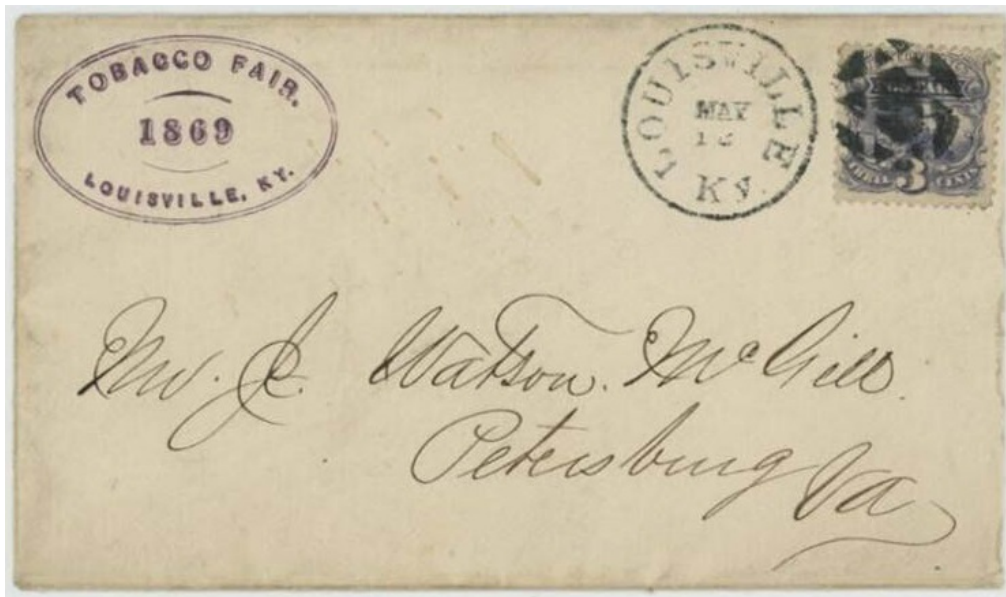 TOBACCO FAIR.
1869
LOUISVILLE, KY.
LOUISVILLE
MAY
Ky.
THREE 3 CENTS
Mr. J. Watson. McGill
Petersburg Va